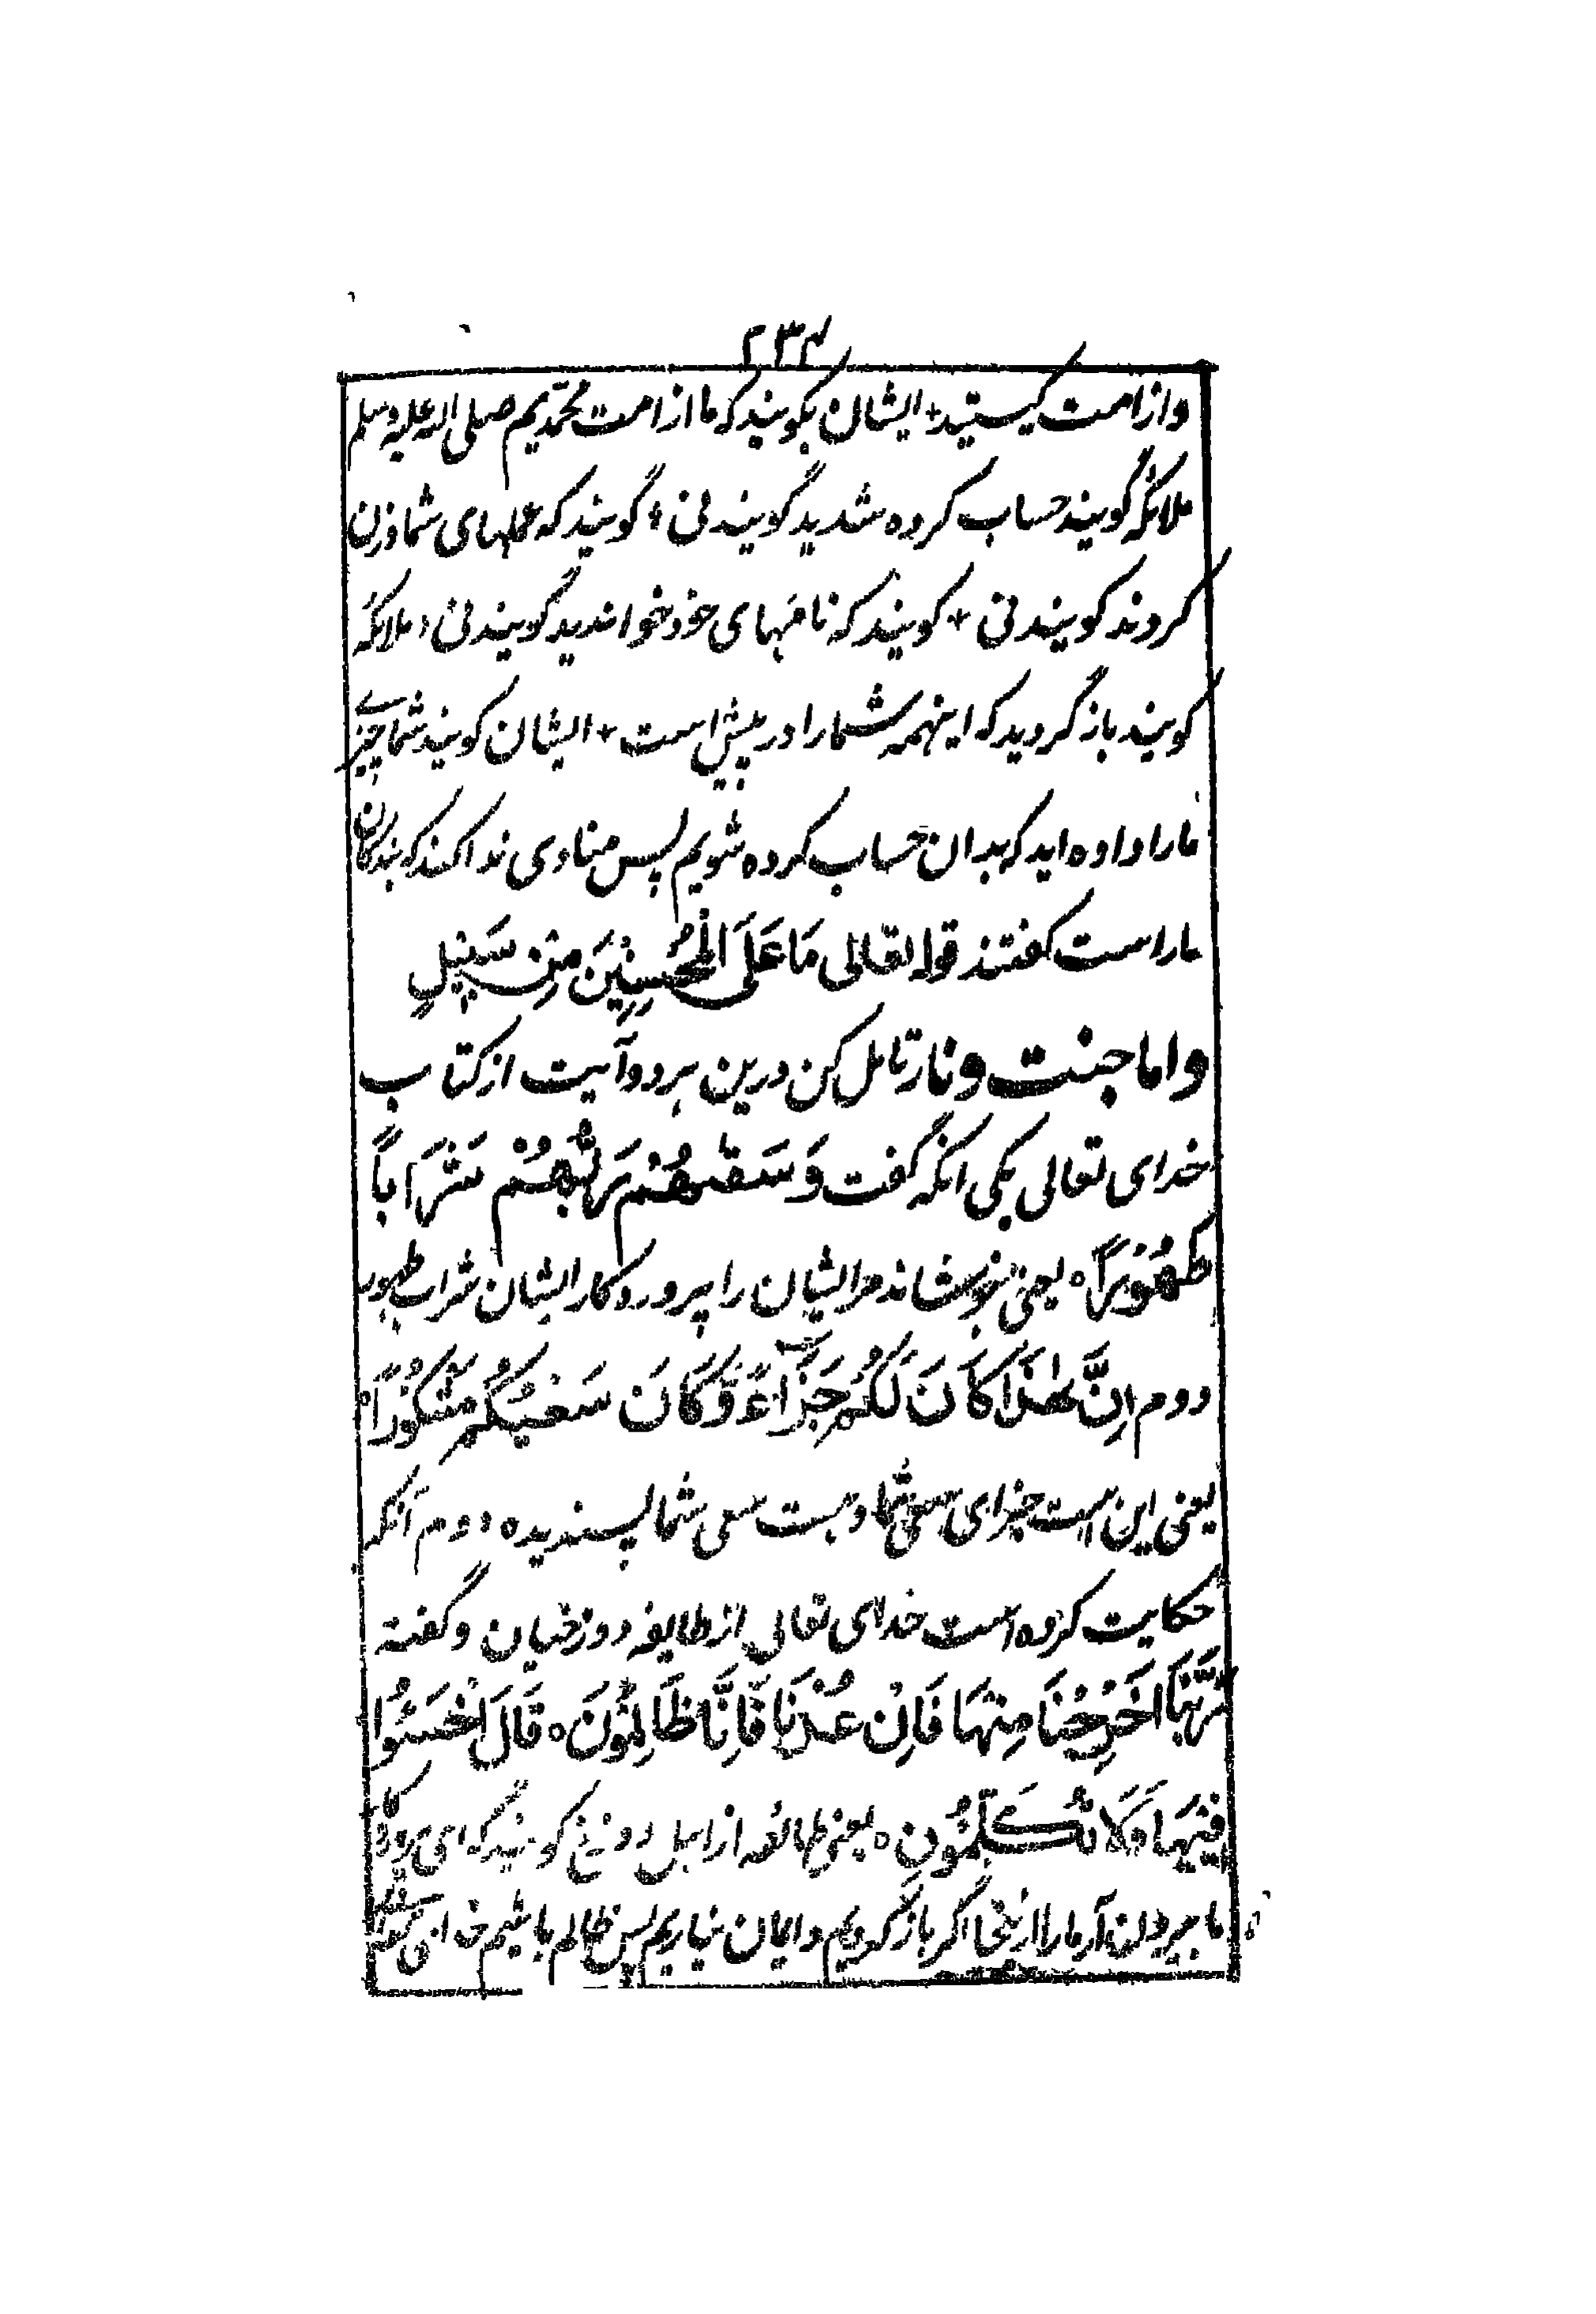 ۲۳۴
و از امت کیستید + ایشان بکویند که ما از امت محمدیم صلی الله علیه وسلم
ملائکه گویند حساب کرده شدید گویند نی + گویند که عملهای شما وزن
کردند کویند نی + کویند که نامهای خود خواندید گویند نی + ملائکه
کویند باز گردید که اینهمه شمارا در پیش است + ایشان کویند شما چیزے
مارا داده اید که بدان حساب کرده شویم پس منادی ندا کند که بندکان
ما راست کفتند قوله تعالی مَا عَلَى الْمُحْسِنِيْنَ مِنْ سَبِيْلٍ
و اما جنت و نار تامل کن درین هر دو آیت از کتاب
خدای تعالی یکی انکه گفت وَسَقٰهُمْ رَبُّهُمْ شَرَاباً
طَهُوْراً ه یعنی بنوشاند مر ایشان را پروردکار ایشان شراب طهور
دوم اِنَّ هٰذَا كَانَ لَكُمْ جَزَآءً وَّ كَانَ سَعْيُكُمْ مَشْكُوْرًا ه
یعنی این است جزای سعی شما و هست سعی شما پسندیده دوم آنکه
حکایت کرده است خدای تعالی از طایفه دوزخیان و گفته
رَبَّنَا اَخْرِجْنَا مِنْهَا فَاِنْ عُدْنَا فَاِنَّا ظَالِمُوْنَ ه قَالَ اخْسَئُوْا
فِيْهَا وَلَا تُكَلِّمُوْنِ ه یعنی طائفه از اهل دوزخ کویند که ای پروردکار
ما بیرون آر مارا ازینجا اگر باز گردیم و ایمان نیاریم پس ظالم باشیم خدای